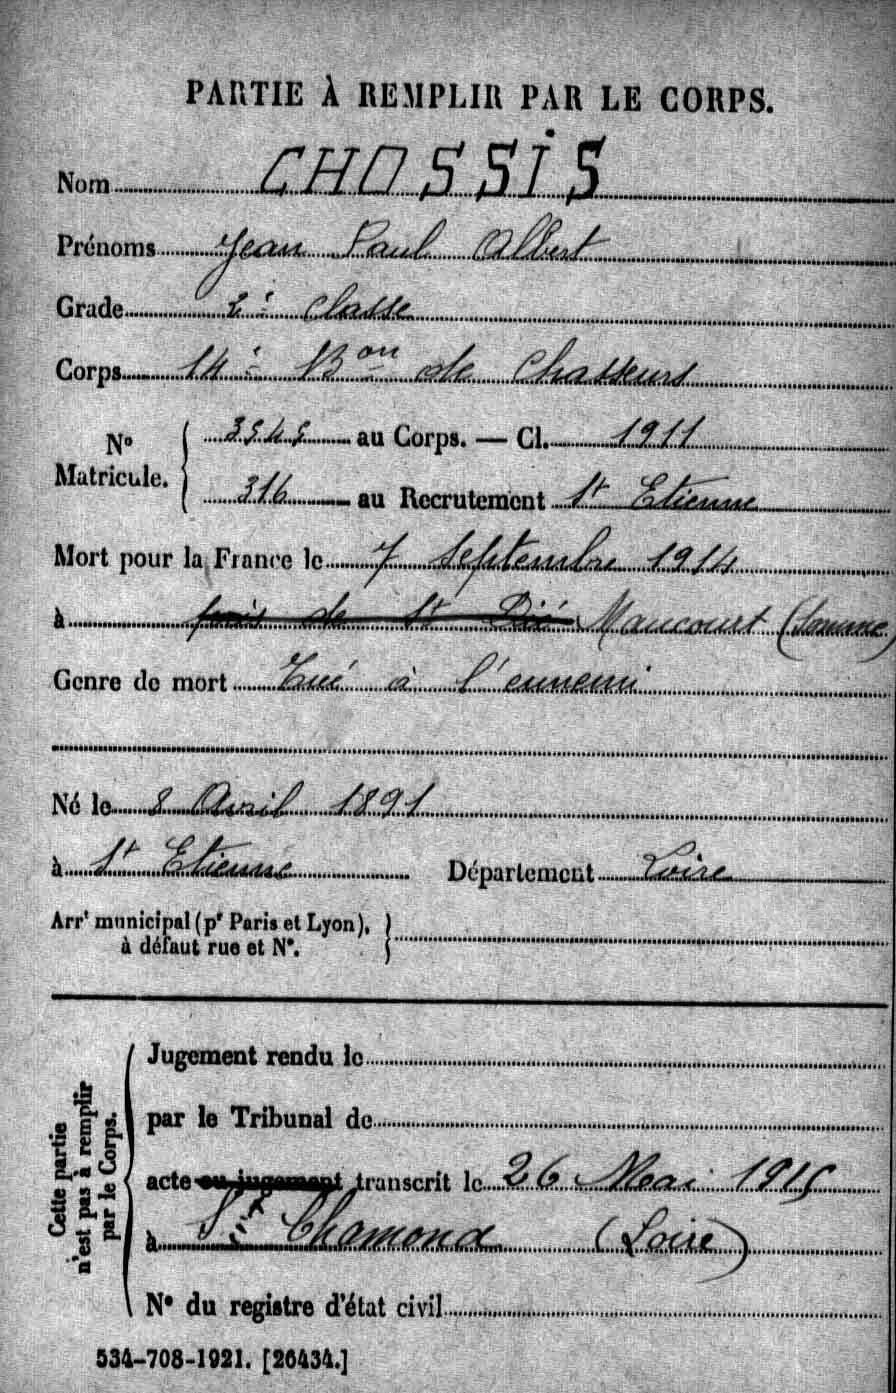 PARTIE À REMPLIR PAR LE CORPS.
Nom CHOSSIS
Prénoms Jean Paul Albert
Grade 2e classe
Corps 14e Bon de Chasseurs
No Matricule. { 3545 au Corps. — Cl. 1911
316 au Recrutement St Etienne
Mort pour la France le 7 Septembre 1914
à près de St Dié Maucourt (Somme)
Genre de mort Tué à l'ennemi
Né le 8 Avril 1891
à St Etienne Département Loire
Arrt municipal (pr Paris et Lyon), à défaut rue et No. }
Cette partie n'est pas à remplir par le Corps.
Jugement rendu le
par le Tribunal de
acte ou jugement transcrit le 26 Mai 1915
à St Chamond (Loire)
No du registre d'état civil
534-708-1921. [26434.]